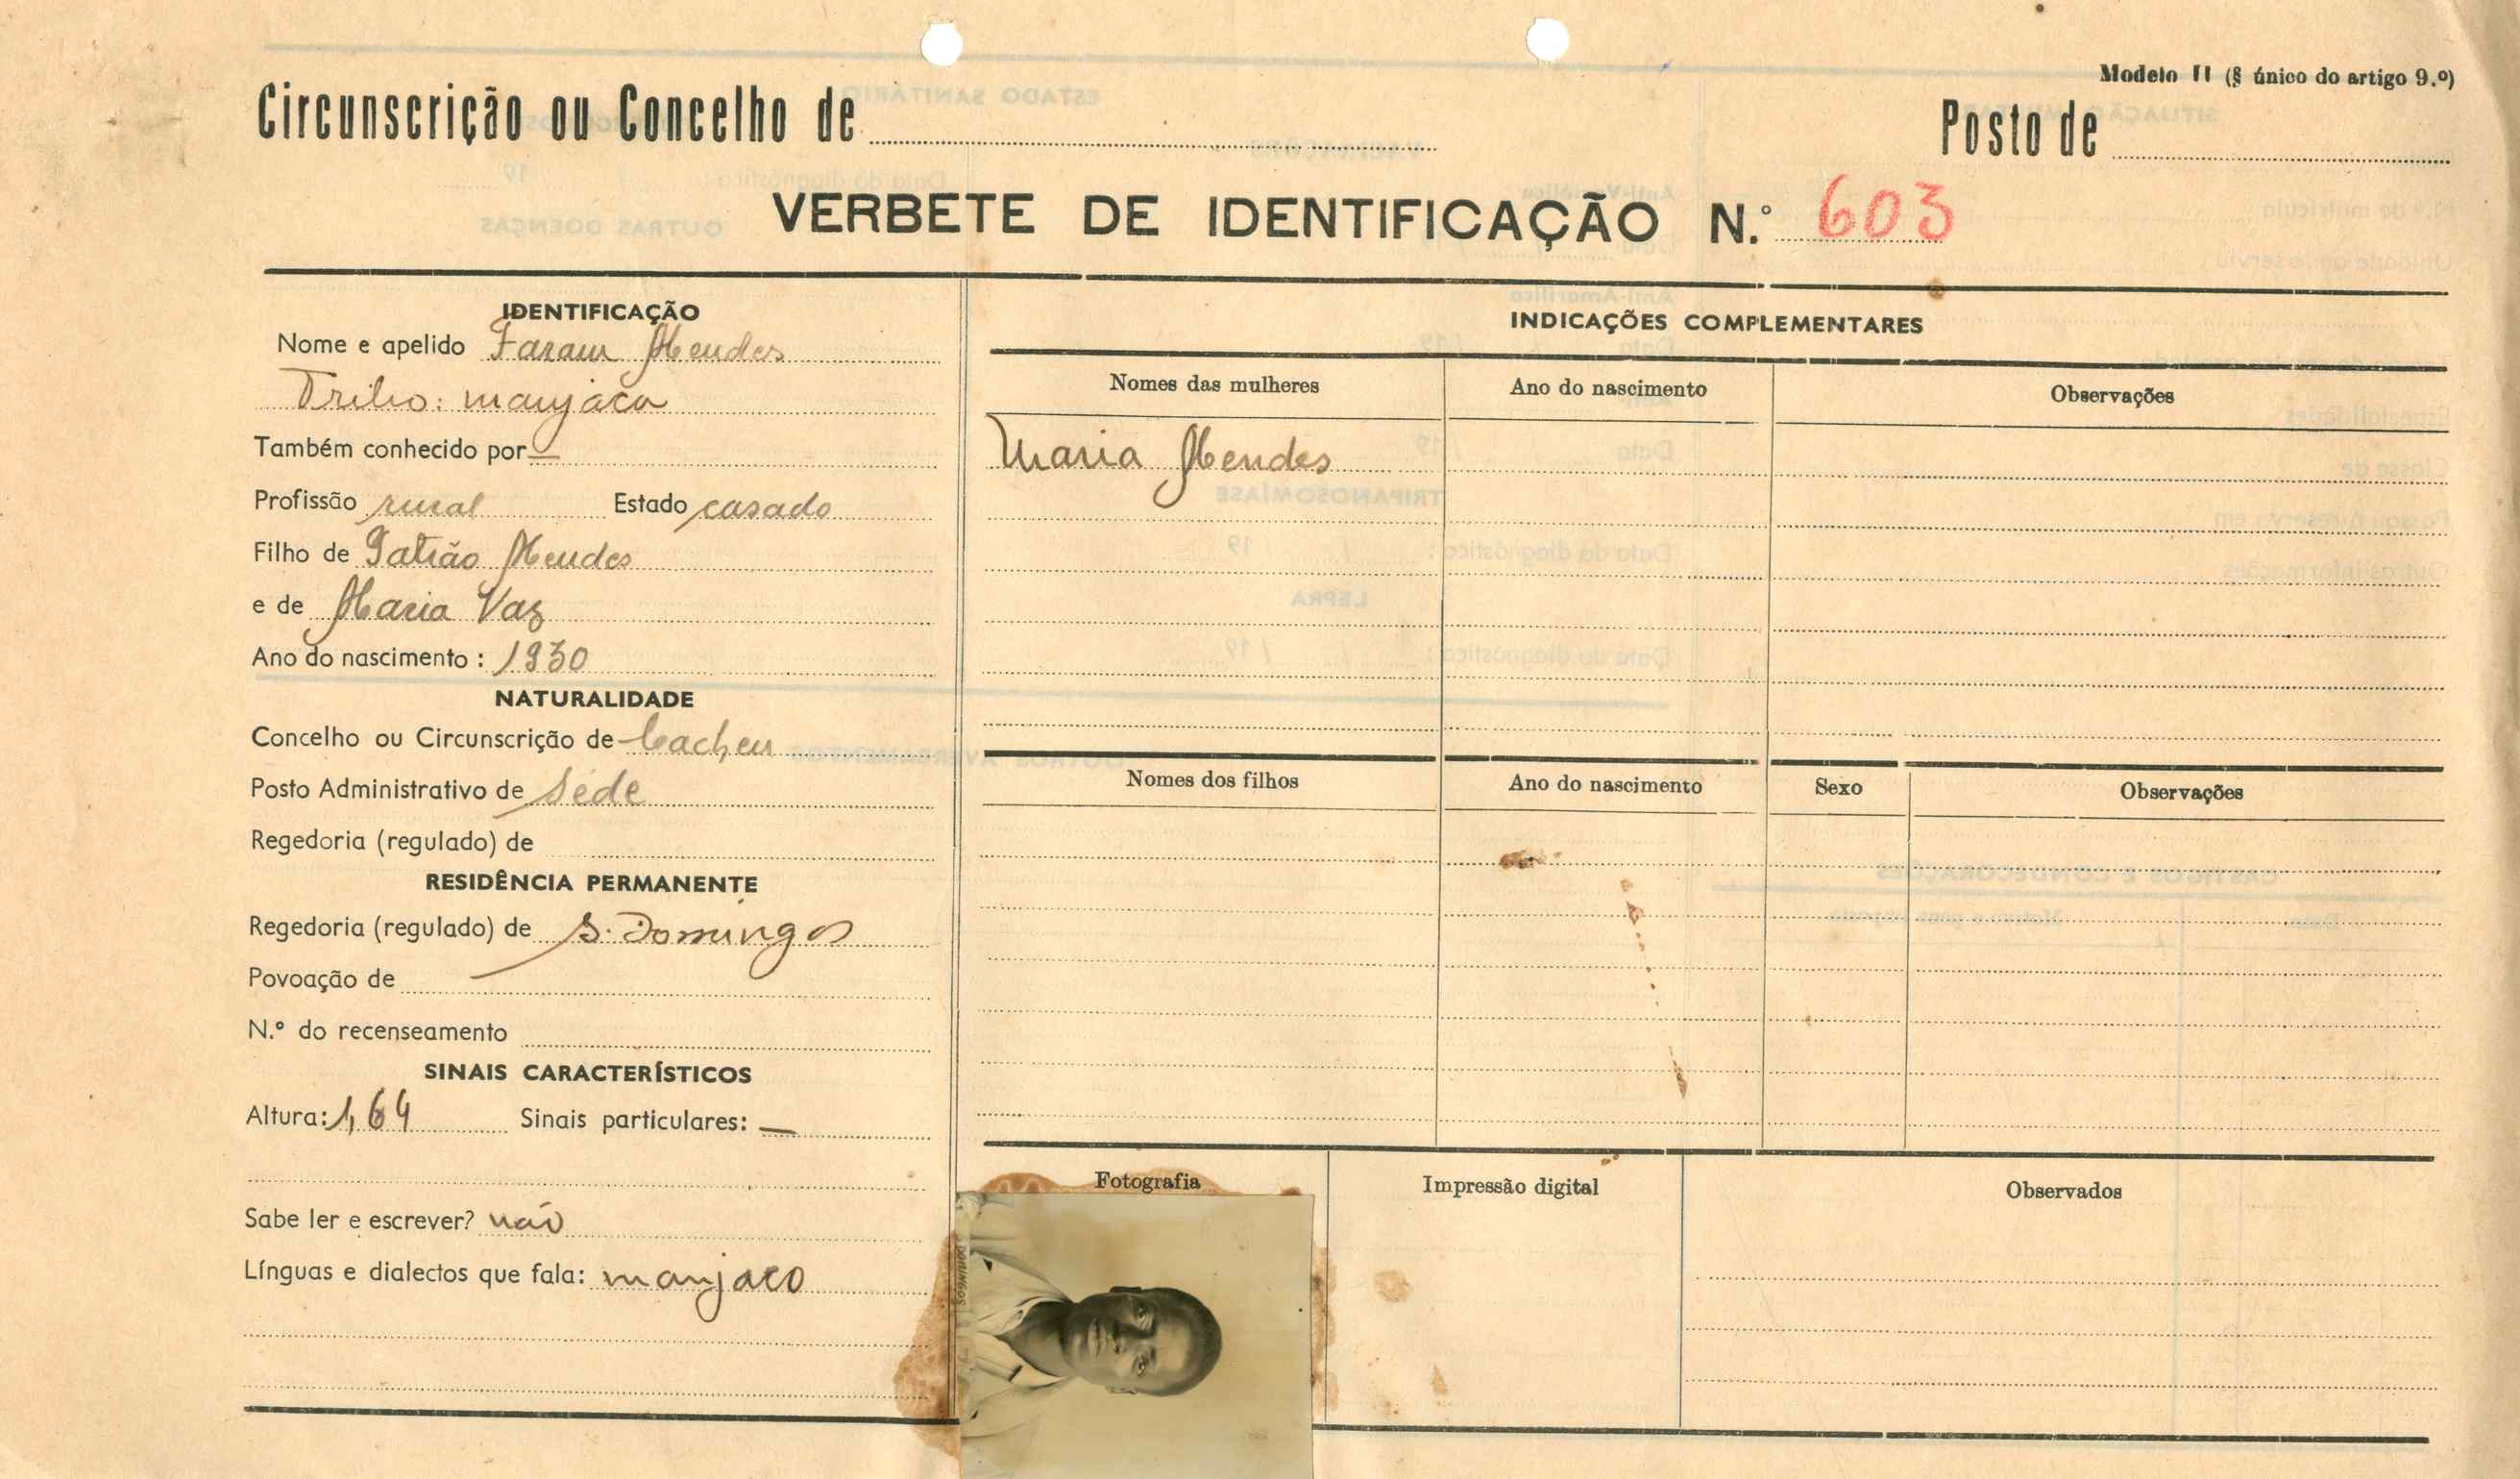 Modelo II (§ único do artigo 9.º)
Circunscrição ou Concelho de
Posto de
VERBETE DE IDENTIFICAÇÃO N.º 603
IDENTIFICAÇÃO
Nome e apelido Faram Mendes
Tribo: manjaca
Também conhecido por —
Profissão rural Estado casado
Filho de Patrão Mendes
e de Maria Vaz
Ano do nascimento: 1930
NATURALIDADE
Concelho ou Circunscrição de Cacheu
Posto Administrativo de Séde
Regedoria (regulado) de
RESIDÊNCIA PERMANENTE
Regedoria (regulado) de S. Domingos
Povoação de
N.º do recenseamento
SINAIS CARACTERÍSTICOS
Altura: 1,64 Sinais particulares: —
Sabe ler e escrever? não
Línguas e dialectos que fala: manjaco
INDICAÇÕES COMPLEMENTARES
Nomes das mulheres Ano do nascimento Observações
Maria Mendes
Nomes dos filhos Ano do nascimento Sexo Observações
Fotografia Impressão digital Observados
DOMINGOS